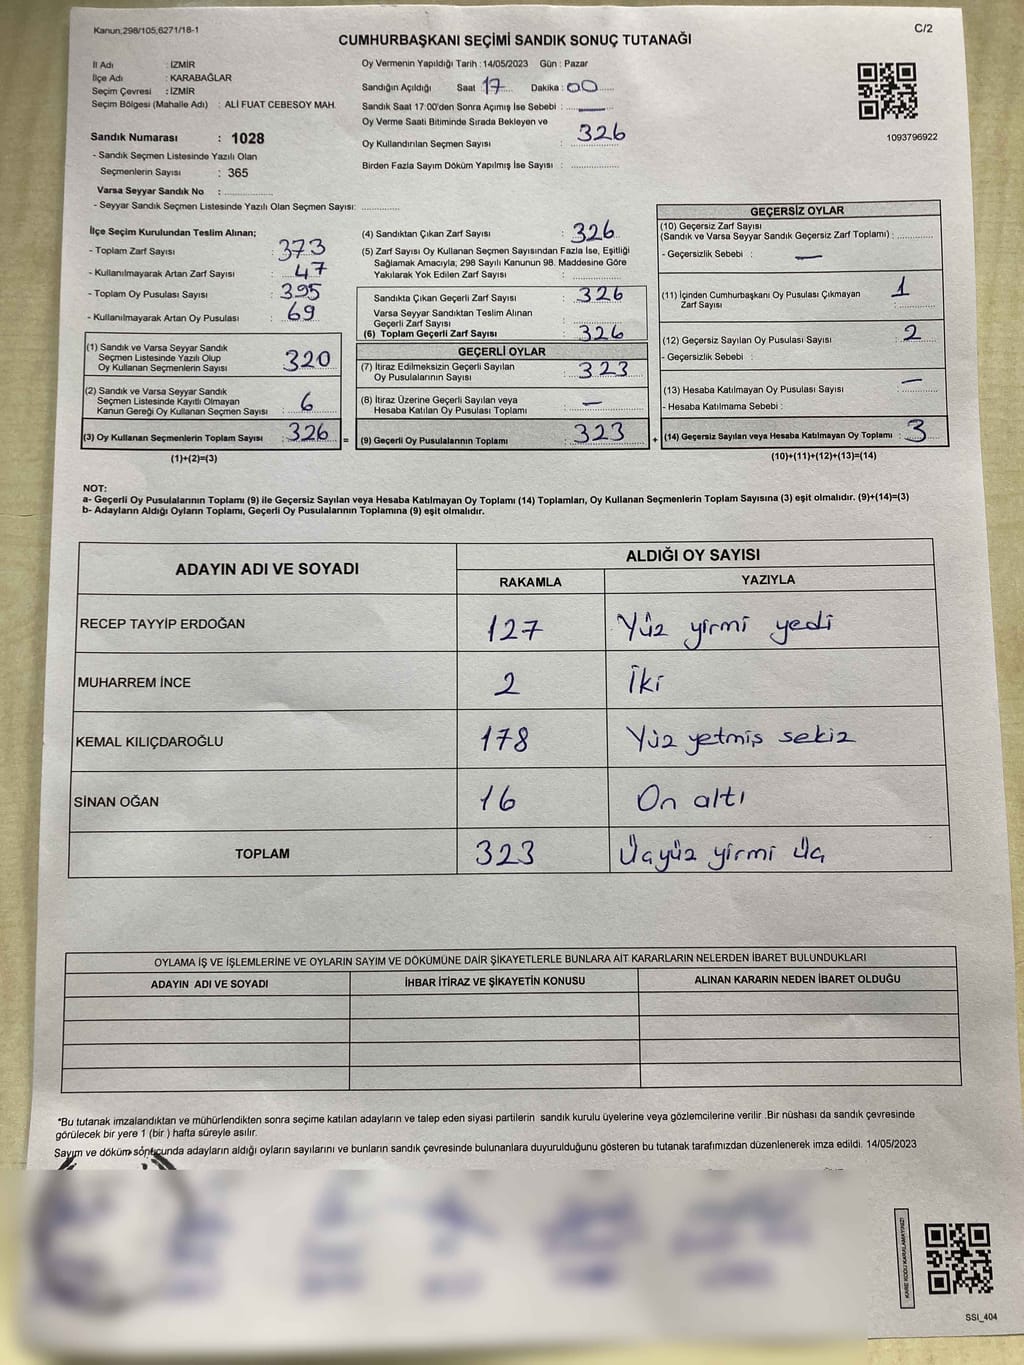 Kanun,298/105,6271/18-1
C/2
CUMHURBAŞKANI SEÇİMİ SANDIK SONUÇ TUTANAĞI
İl Adı : İZMİR
İlçe Adı : KARABAĞLAR
Seçim Çevresi : İZMİR
Seçim Bölgesi (Mahalle Adı) : ALİ FUAT CEBESOY MAH.
Sandık Numarası : 1028
- Sandık Seçmen Listesinde Yazılı Olan
Seçmenlerin Sayısı : 365
Varsa Seyyar Sandık No :
- Seyyar Sandık Seçmen Listesinde Yazılı Olan Seçmen Sayısı:
Oy Vermenin Yapıldığı Tarih : 14/05/2023 Gün : Pazar
Sandığın Açıldığı Saat 17 Dakika : 00
Sandık Saat 17:00'den Sonra Açımış İse Sebebi : —
Oy Verme Saati Bitiminde Sırada Bekleyen ve
Oy Kullandırılan Seçmen Sayısı : 326
Birden Fazla Sayım Döküm Yapılmış İse Sayısı :
1093796922
İlçe Seçim Kurulundan Teslim Alınan;
- Toplam Zarf Sayısı : 373
- Kullanılmayarak Artan Zarf Sayısı : 47
- Toplam Oy Pusulası Sayısı : 395
- Kullanılmayarak Artan Oy Pusulası : 69
(1) Sandık ve Varsa Seyyar Sandık
Seçmen Listesinde Yazılı Olup
Oy Kullanan Seçmenlerin Sayısı : 320
(2) Sandık ve Varsa Seyyar Sandık
Seçmen Listesinde Kayıtlı Olmayan
Kanun Gereği Oy Kullanan Seçmen Sayısı : 6
(3) Oy Kullanan Seçmenlerin Toplam Sayısı : 326 =
(1)+(2)=(3)
(4) Sandıktan Çıkan Zarf Sayısı : 326
(5) Zarf Sayısı Oy Kullanan Seçmen Sayısından Fazla İse, Eşitliği
Sağlamak Amacıyla; 298 Sayılı Kanunun 98. Maddesine Göre
Yakılarak Yok Edilen Zarf Sayısı :
Sandıkta Çıkan Geçerli Zarf Sayısı : 326
Varsa Seyyar Sandıktan Teslim Alınan
Geçerli Zarf Sayısı :
(6) Toplam Geçerli Zarf Sayısı : 326
GEÇERLİ OYLAR
(7) İtiraz Edilmeksizin Geçerli Sayılan
Oy Pusulalarının Sayısı : 323
(8) İtiraz Üzerine Geçerli Sayılan veya
Hesaba Katılan Oy Pusulası Toplamı : —
(9) Geçerli Oy Pusulalarının Toplamı : 323 +
GEÇERSİZ OYLAR
(10) Geçersiz Zarf Sayısı
(Sandık ve Varsa Seyyar Sandık Geçersiz Zarf Toplamı) :
- Geçersizlik Sebebi : —
(11) İçinden Cumhurbaşkanı Oy Pusulası Çıkmayan
Zarf Sayısı : 1
(12) Geçersiz Sayılan Oy Pusulası Sayısı : 2
- Geçersizlik Sebebi :
(13) Hesaba Katılmayan Oy Pusulası Sayısı : —
- Hesaba Katılmama Sebebi :
(14) Geçersiz Sayılan veya Hesaba Katılmayan Oy Toplamı : 3
(10)+(11)+(12)+(13)=(14)
NOT:
a- Geçerli Oy Pusulalarının Toplamı (9) ile Geçersiz Sayılan veya Hesaba Katılmayan Oy Toplamı (14) Toplamları, Oy Kullanan Seçmenlerin Toplam Sayısına (3) eşit olmalıdır. (9)+(14)=(3)
b- Adayların Aldığı Oyların Toplamı, Geçerli Oy Pusulalarının Toplamına (9) eşit olmalıdır.
ADAYIN ADI VE SOYADI
ALDIĞI OY SAYISI
RAKAMLA YAZIYLA
RECEP TAYYİP ERDOĞAN 127 Yüz yirmi yedi
MUHARREM İNCE 2 İki
KEMAL KILIÇDAROĞLU 178 Yüz yetmiş sekiz
SİNAN OĞAN 16 On altı
TOPLAM 323 Üçyüz yirmi üç
OYLAMA İŞ VE İŞLEMLERİNE VE OYLARIN SAYIM VE DÖKÜMÜNE DAİR ŞİKAYETLERLE BUNLARA AİT KARARLARIN NELERDEN İBARET BULUNDUKLARI
ADAYIN ADI VE SOYADI İHBAR İTİRAZ VE ŞİKAYETİN KONUSU ALINAN KARARIN NEDEN İBARET OLDUĞU
*Bu tutanak imzalandıktan ve mühürlendikten sonra seçime katılan adayların ve talep eden siyasi partilerin sandık kurulu üyelerine veya gözlemcilerine verilir .Bir nüshası da sandık çevresinde
görülecek bir yere 1 (bir ) hafta süreyle asılır.
Sayım ve döküm sonucunda adayların aldığı oyların sayılarını ve bunların sandık çevresinde bulunanlara duyurulduğunu gösteren bu tutanak tarafımızdan düzenlenerek imza edildi. 14/05/2023
KARE KODU KARALAMAYINIZ!
SSI_404